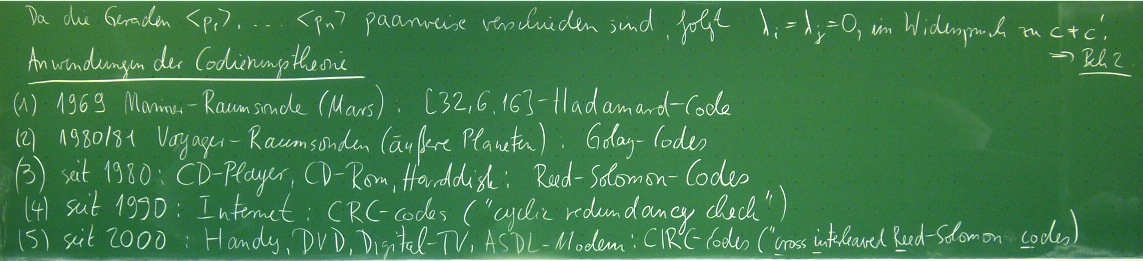 Da die Geraden <p₁>, ... <pₙ> paarweise verschieden sind, folgt λᵢ = λⱼ = 0, im Widerspruch zu c ≠ c'.
⇒ Beh 2.
Anwendungen der Codierungstheorie
(1) 1969 Mariner-Raumsonde (Mars): [32,6,16]-Hadamard-Code
(2) 1980/81 Voyager-Raumsonden (äußere Planeten): Golay-Codes
(3) seit 1980: CD-Player, CD-Rom, Harddisk: Reed-Solomon-Codes
(4) seit 1990: Internet: CRC-codes ("cyclic redundancy check")
(5) seit 2000: Handy, DVD, Digital-TV, ASDL-Modem: CIRC-Codes ("cross interleaved Reed-Solomon codes)